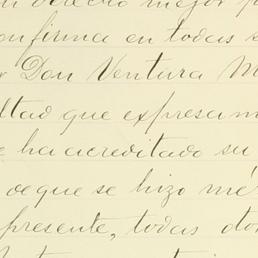 derecho mejor p
onfirma en todas s
Don Ventura M
ultad que expresam
e ha acreditado su
de que se hizo mé
presente, todas